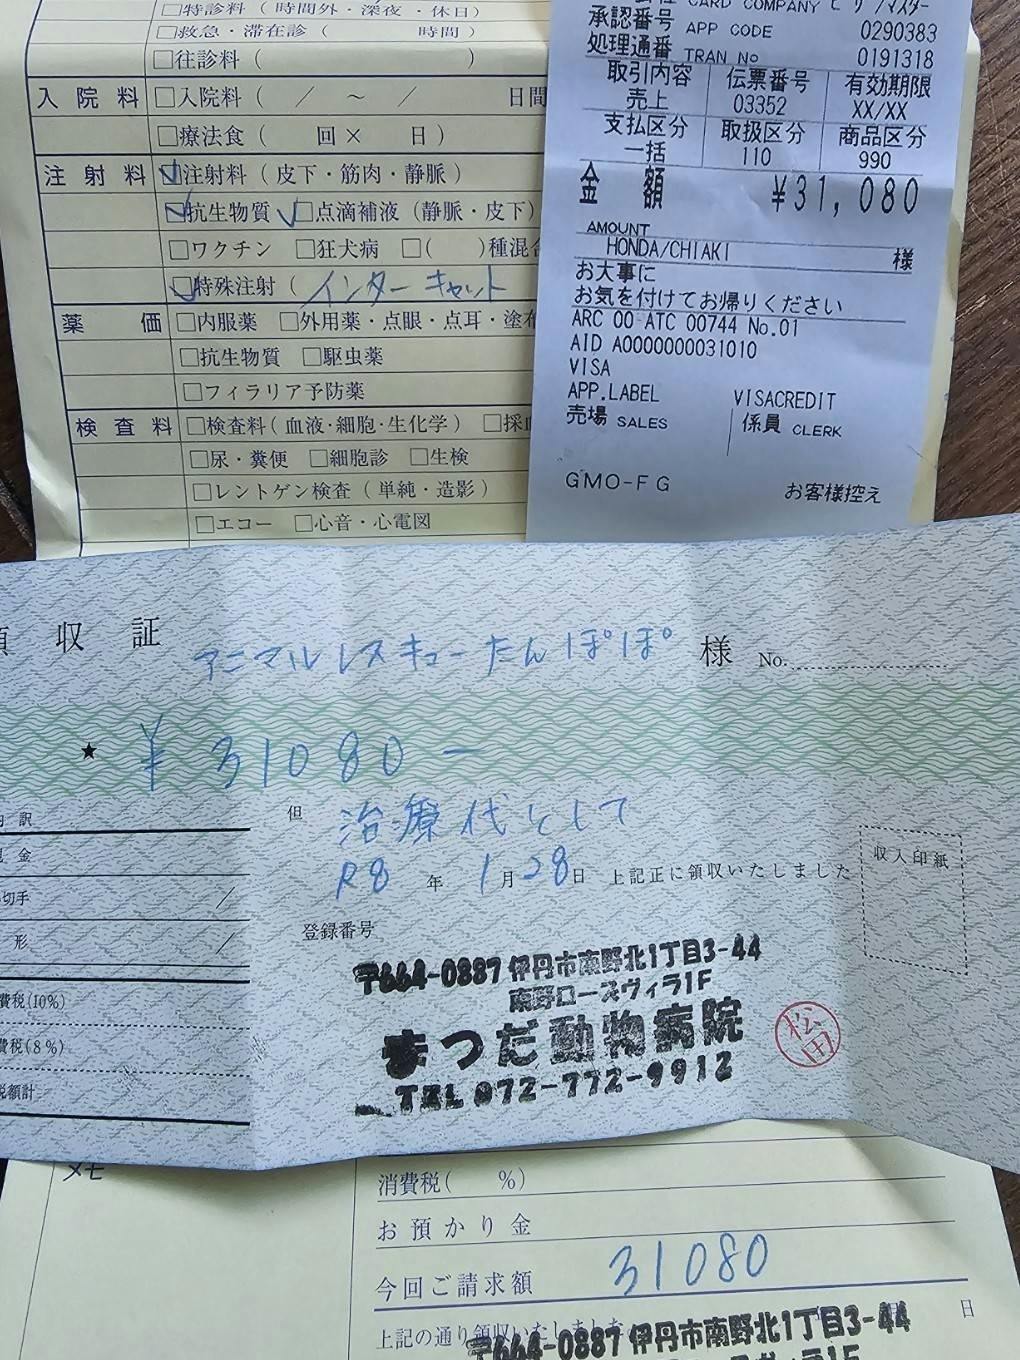 □特診料（時間外・深夜・休日）
□救急・滞在診（　　　時間）
□往診料（　　　）
入院料 □入院料（　／　～　／　　日間
□療法食（　　回×　　日）
注射料 ☑注射料（皮下・筋肉・静脈）
☑抗生物質 ☑点滴補液（静脈・皮下）
□ワクチン □狂犬病 □(　　)種混合
☑特殊注射（インターキャット
薬価 □内服薬 □外用薬・点眼・点耳・塗布
□抗生物質 □駆虫薬
□フィラリア予防薬
検査料 □検査料（血液・細胞・生化学） □採血
□尿・糞便 □細胞診 □生検
□レントゲン検査（単純・造影）
□エコー □心音・心電図
CARD COMPANY
承認番号 APP CODE 0290383
処理通番 TRAN No 0191318
取引内容 伝票番号 有効期限
売上 03352 XX/XX
支払区分 取扱区分 商品区分
一括 110 990
金額 ¥31,080
AMOUNT
HONDA/CHIAKI 様
お大事に
お気を付けてお帰りください
ARC 00 ATC 00744 No.01
AID A0000000031010
VISA
APP.LABEL VISACREDIT
売場 SALES 係員 CLERK
GMO-FG お客様控え
収証 アニマルレスキューたんぽぽ 様 No.
★ ¥31080-
訳
金
切手
形
費税(10%)
費税(8%)
税額計
但 治療代として
R8年1月28日 上記正に領収いたしました
収入印紙
登録番号
〒664-0887 伊丹市南野北1丁目3-44
南野ローズヴィラ1F
まつだ動物病院
TEL 072-772-9912
松田
メモ
消費税(　　%)
お預かり金
今回ご請求額 31080
上記の通り領収いたしました 月 日
〒664-0887 伊丹市南野北1丁目3-44